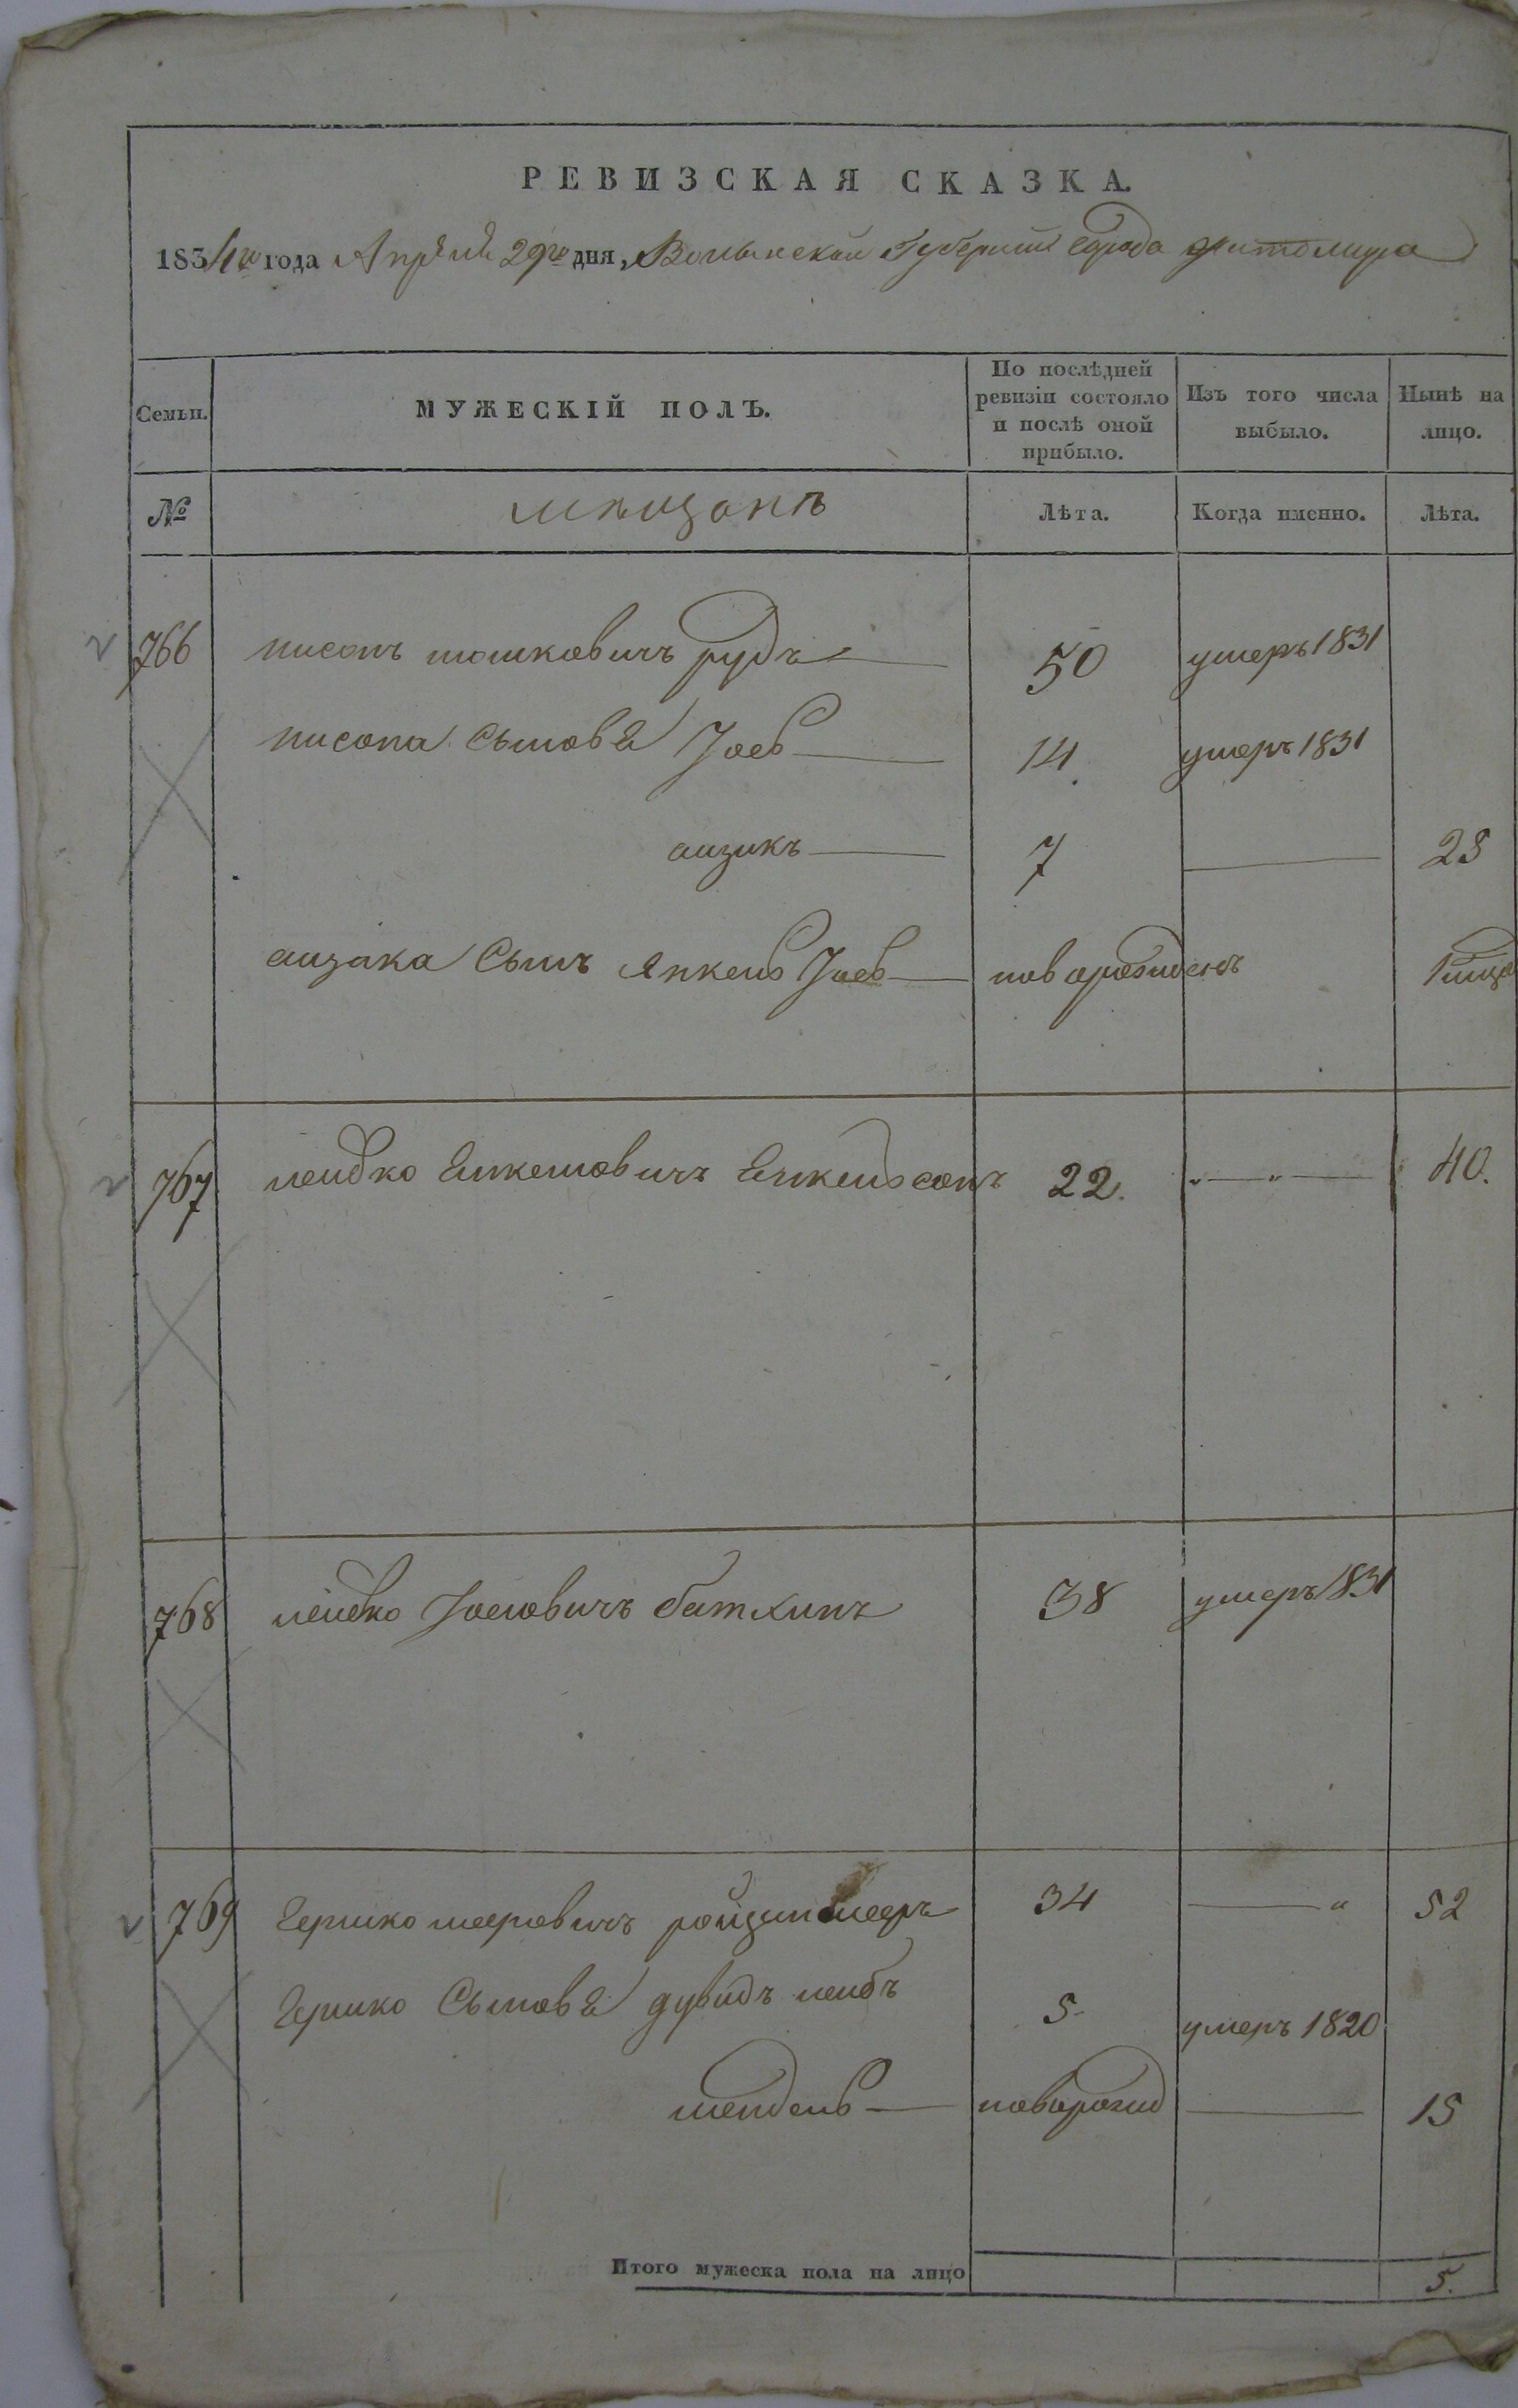 РЕВИЗСКАЯ СКАЗКА.
1834го года Апреля 29го дня, Волынской Губернии Города Житомира
Семьи. МУЖЕСКІЙ ПОЛЪ. По послѣдней ревизіи состояло и послѣ оной прибыло. Изъ того числа выбыло. Нынѣ на лицо.
№ мещанъ Лѣта. Когда именно. Лѣта.
766 нисонъ мошковичъ рудъ 50 умеръ 1831
нисона Сыновья Іось 14 умеръ 1831
аизикъ 7 25
аизика Сынъ Янкель Іось новорожденъ
767 лейбко Енкелевичъ Енкельсонъ 22. 40.
768 лейбко Іосевичъ баткинъ 38 умеръ 1831
769 Гершко мееровичъ 34 52
Гершко Сыновья дувидъ лейбъ 5 умеръ 1820
мендель новорожд 15
Итого мужеска пола на лицо 5.